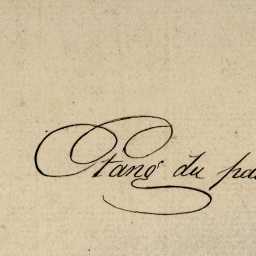 Etang du pa